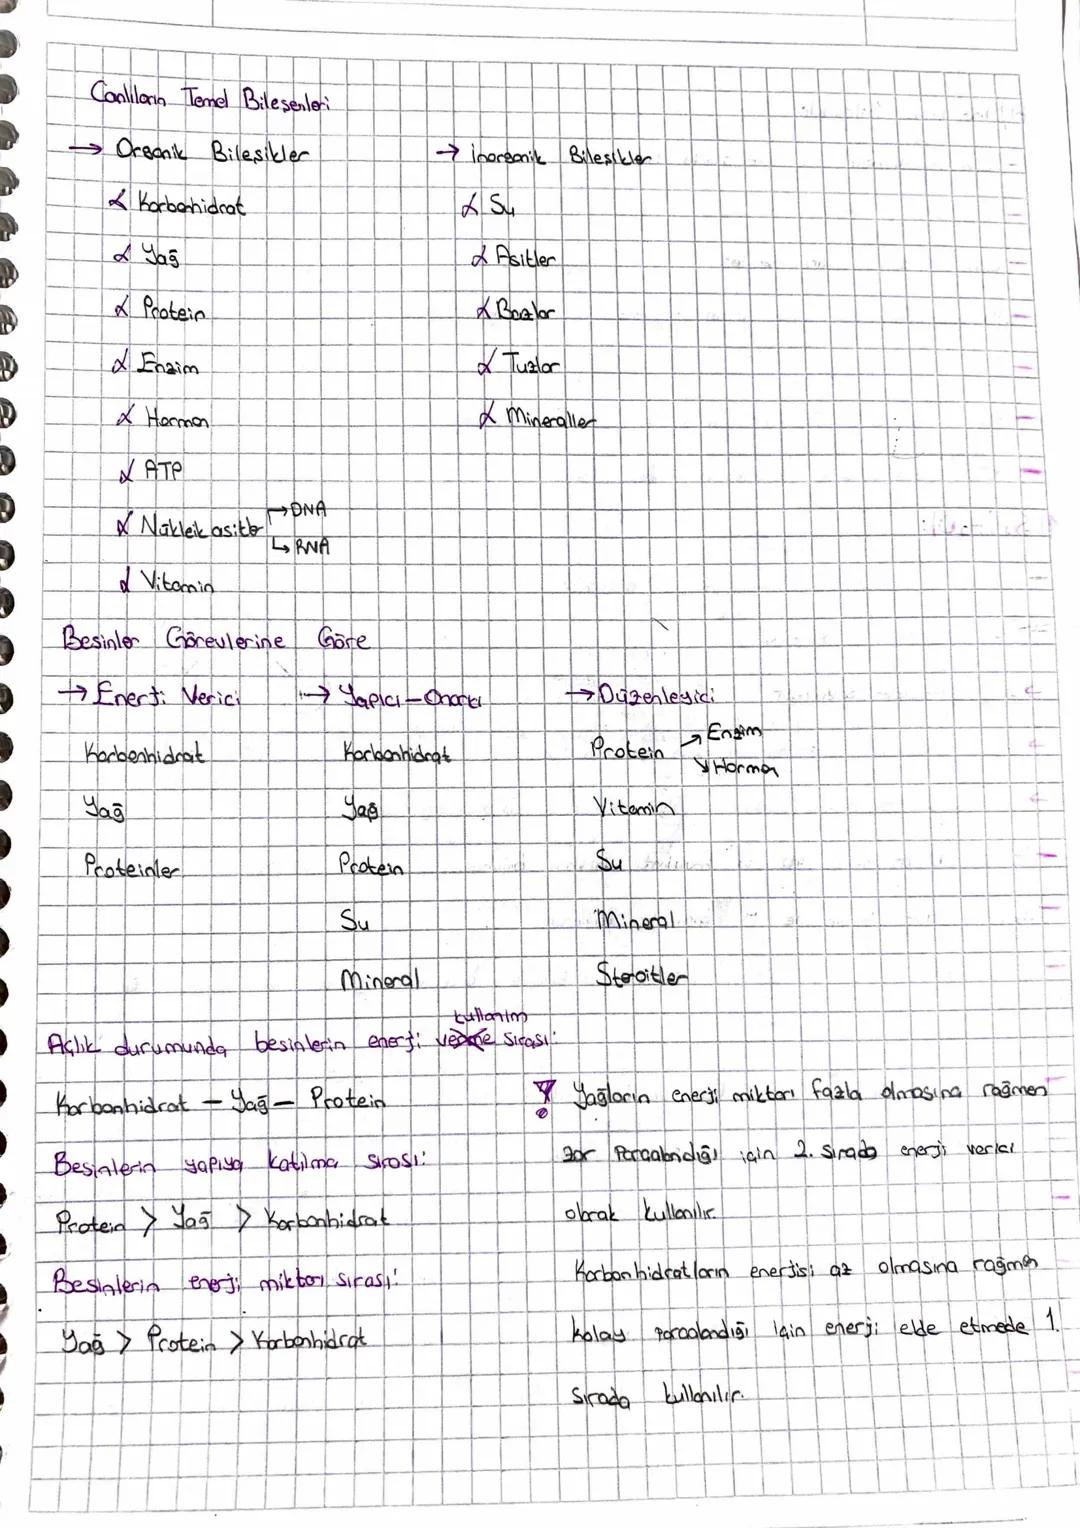 Canlıların Temel Bileşenleri
→ Organik Bileşikler
Karbonhidrat
Yağ
Protein
Enzim
Hormon
ATP
Nükleik asitler → DNA
→ RNA
Vitamin
→ İnorganik Bileşikler
Su
Asitler
Bazlar
Tuzlar
Mineraller
Besinler Görevlerine Göre
→ Enerji Verici
Karbonhidrat
Yağ
Proteinler
→ Yapıcı-Onarıcı
Karbonhidrat
Yağ
Protein
Su
Mineral
→ Düzenleyici
Protein → Enzim
→ Hormon
Vitamin
Su
Mineral
Steroitler
kullanım
Açlık durumunda besinlerin enerji verme sırası:
Karbonhidrat - Yağ - Protein
Besinlerin yapıya katılma sırası:
Protein > Yağ > Karbonhidrat
Besinlerin enerji miktarı sırası:
Yağ > Protein > Karbonhidrat
! Yağların enerji miktarı fazla olmasına rağmen
zor parçalandığı için 2. sırada enerji verici
olarak kullanılır.
Karbonhidratların enerjisi az olmasına rağmen
kolay parçalandığı için enerji elde etmede 1.
sırada kullanılır.